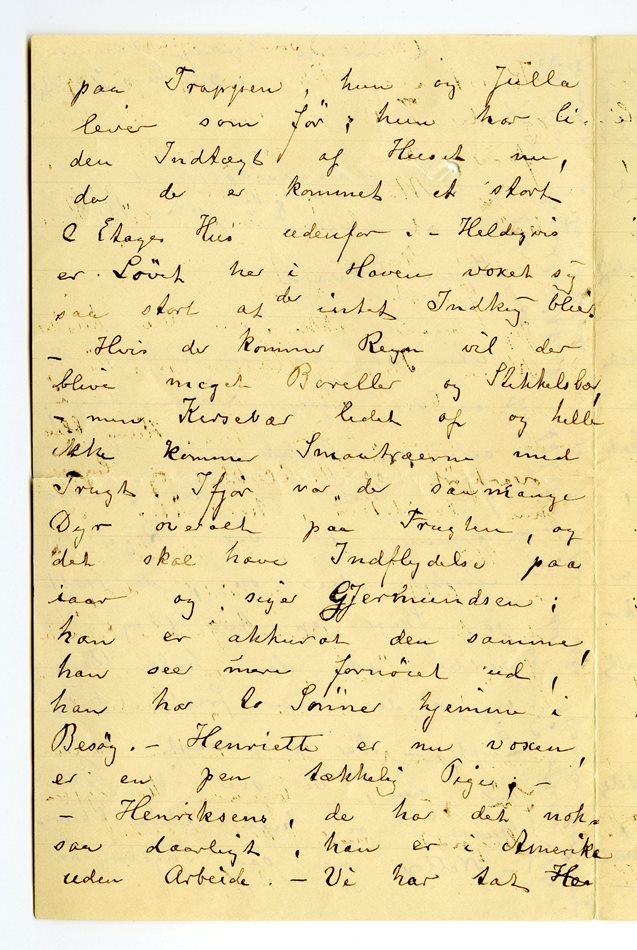 paa Trappen, hun og Julla
lever som før; hun har li-
den Indtægt af Huset nu,
da der er kommet et stort
2 Etages Hus udenfor. - Heldigvis
er Løvet her i Haven voxet sig
saa stort at der intet Indkig bliver
- Hvis der kommer Regn vil der
blive meget Boreller og Stikkelsbær,
- men Kirsebær lidet af og heller
ikke kommer Smaatræerne med
Frugt. Ifjor var der saa mange
Dyr overalt paa Frugten, og
det skal have Indflydelse paa
iaar og siger Gjermundsen;
han er akkurat den samme,
han seer mere fornøiet ud,
han har to Sønner hjemme i
Besøg. - Henriette er nu voxen,
er en pen tækkelig Pige; -
- Henriksens, de har det nok-
saa daarligt, han er i Amerika
uden Arbeide. - Vi har tat